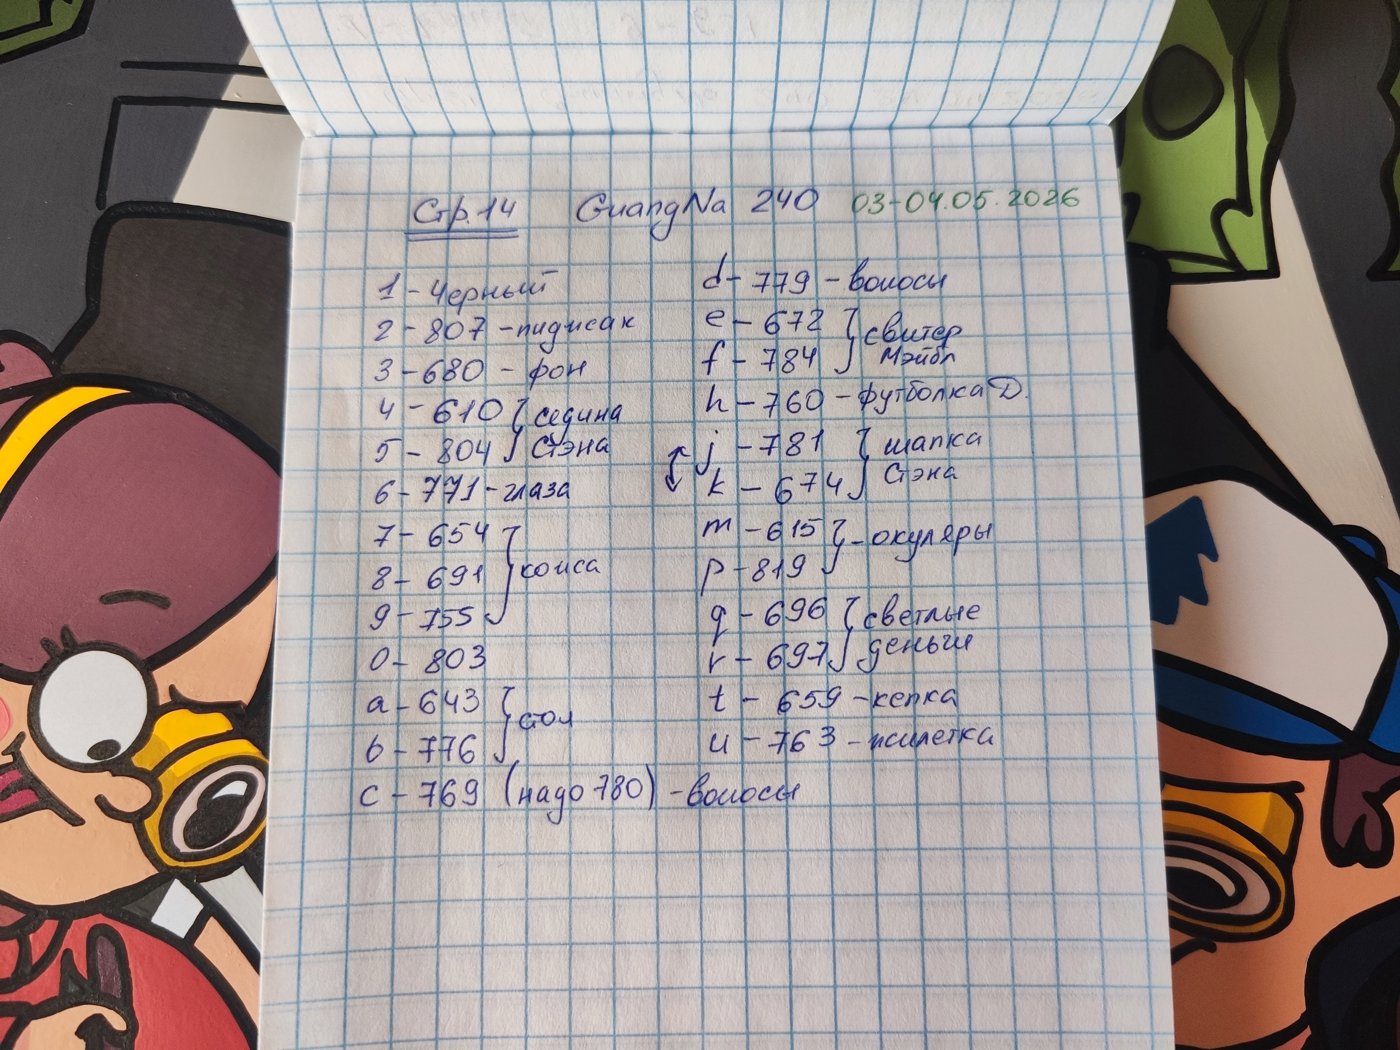 Стр.14 GuangNa 240 03-04.05.2026
1 - Черный
2 - 807 - пиджак
3 - 680 - фон
4 - 610 } седина
5 - 804 } Стэна
6 - 771 - глаза
7 - 654
8 - 691 } кожа
9 - 755
0 - 803
a - 643 } стол
b - 776
c - 769 (надо 780) - волосы
d - 779 - волосы
e - 672 } свитер
f - 784 } Мэйбл
h - 760 - футболка D.
j - 781 } шапка
k - 674 } Стэна
m - 615 } - окуляры
p - 819
q - 696 } светлые
r - 697 } деньги
t - 659 - кепка
u - 763 - жилетка